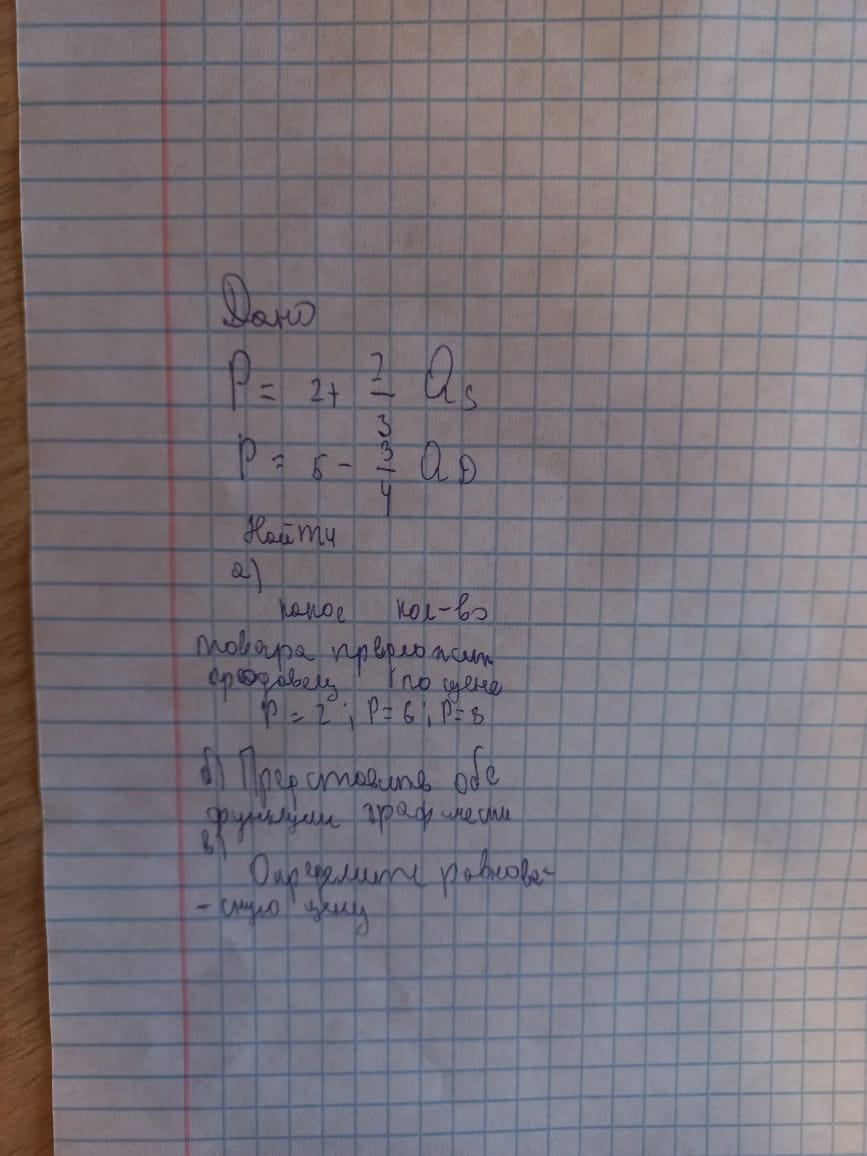 Дано
P = 2 + 2/3 Qs
P = 5 - 3/4 QD
Найти
а)
какое кол-во
товара предложит
продавец по цене
P = 2; P = 6; P = 8
б) Представить обе
функции графически
в)
Определите равнове-
-сную цену